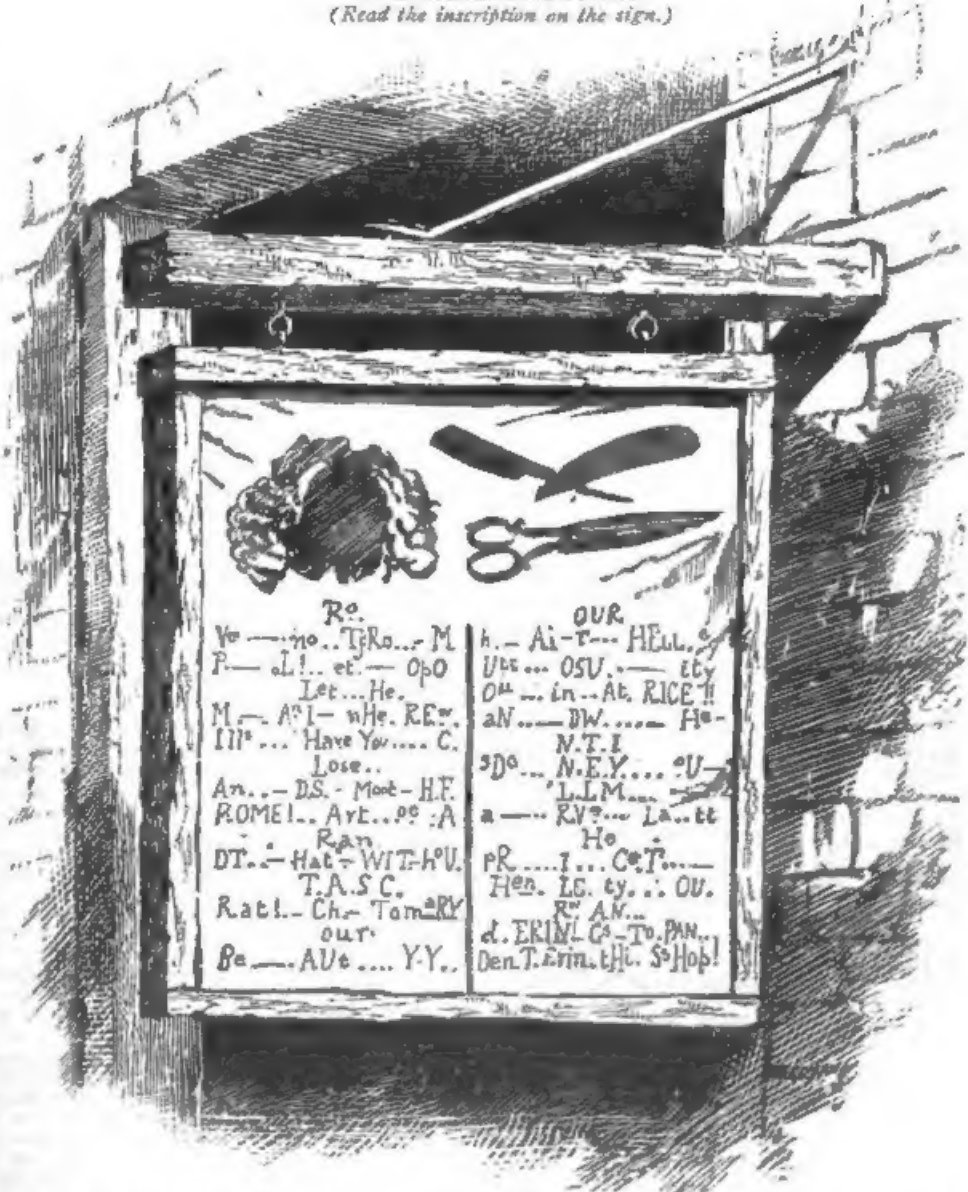 (Read the inscription on the sign.)
Ro.
Ve —— no.. TfRo...- M
P.— oL!... et. — OpO
Let...He.
M.— API— nHe. REw.
Ille ... Have You.... C.
Lose..
An..- D.S. - Moot - H.F.
ROME!.. Art..oc :A
Ran
DT..—Hat— WIT-hoU.
T.A.S C.
Rat!.- Ch.- TomaRY
our.
Be.——. AUt .... Y-Y..
OUR
h.— Ai-T--- HELL.o
Utt ... OSU. —— tty
Ou ... in .. At. RICE !!
aN.....— DW....... He-
N.T.I
sDo... N.E.Y.... oU—
L.L.M....
a —--- RVe... La..tt
Ho
pR .....I... Ce.T....—
Hen. LC. ty. .'. OU.
Rw AN...
d. ERIN!. Cs-To. PAN..
Den.T.Erin.tHi. SsHop!